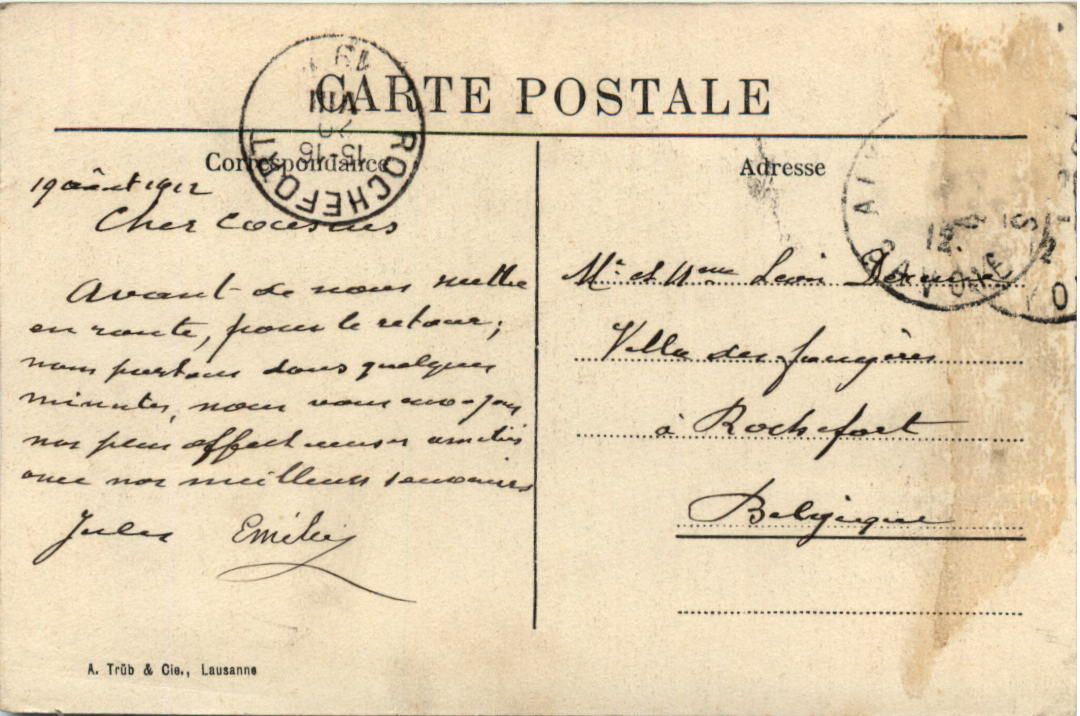 CARTE POSTALE
Correspondance
Adresse
ROCHEFORT
15-16
20
VIII
19
19 août 1912
Cher Cousins
Avant de nous mettre
en route, pour le retour;
nous partons dans quelques
minutes, nous vous envoyons
nos plus affectueuses amitiés
avec nos meilleurs souvenirs
Jules Emilie
Mr et Mme Léon
Villa des fougères
à Rochefort
Belgique
SAVOIE
12
A. Trüb & Cie., Lausanne